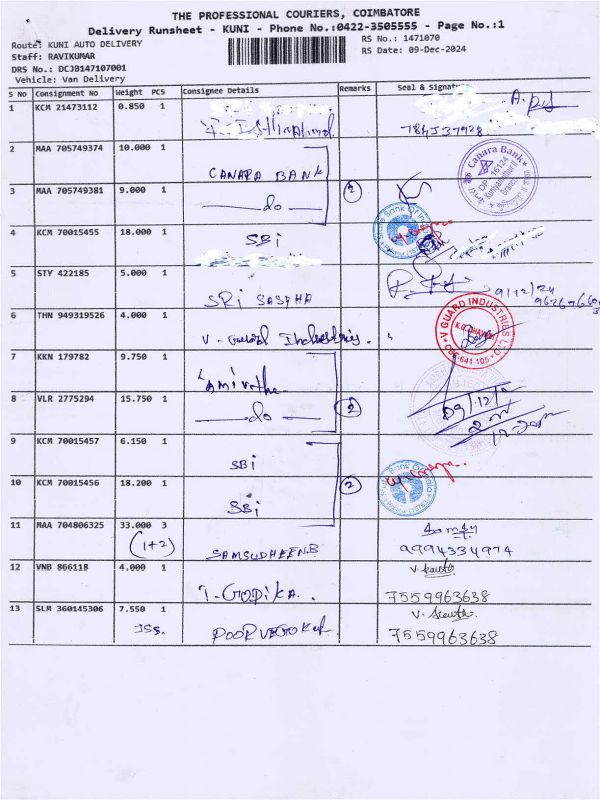 THE PROFESSIONAL COURIERS, COIMBATORE
Delivery Runsheet - KUNI - Phone No.:0422-3505555 - Page No.:1
Route: KUNI AUTO DELIVERY
RS No.: 1471070
Staff: RAVIKUMAR
RS Date: 09-Dec-2024
DRS No.: DCJB147107001
Vehicle: Van Delivery
S No Consignment No Weight PCS Consignee Details Remarks Seal & Signature
1 KCM 21473112 0.850 1
2 MAA 705749374 10.000 1 CANARA BANK
Canara Bank
DP 16124
3 MAA 705749381 9.000 1 do 2
4 KCM 70015455 18.000 1 SBI
State Bank Of India
5 STY 422185 5.000 1 SRI SASTHA
9/12/24
6 THN 949319526 4.000 1 V. Guard Industries
V GUARD INDUSTRIES LTD.
CBE-641 105
7 KKN 179782 9.750 1
8 VLR 2775294 15.750 1 do 2
09/12/2
9 KCM 70015457 6.150 1 SBI
10 KCM 70015456 18.200 1 SBI 2
State Bank Of India
11 MAA 704806325 33.000 3
(1+2) SAMSUDHEEN.B 9994334974
12 VNB 866118 4.000 1
T. GOPIKA. 7559963638
13 SLM 360145306 7.550 1
7559963638